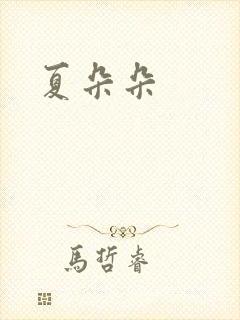 夏朵朵
馬哲睿